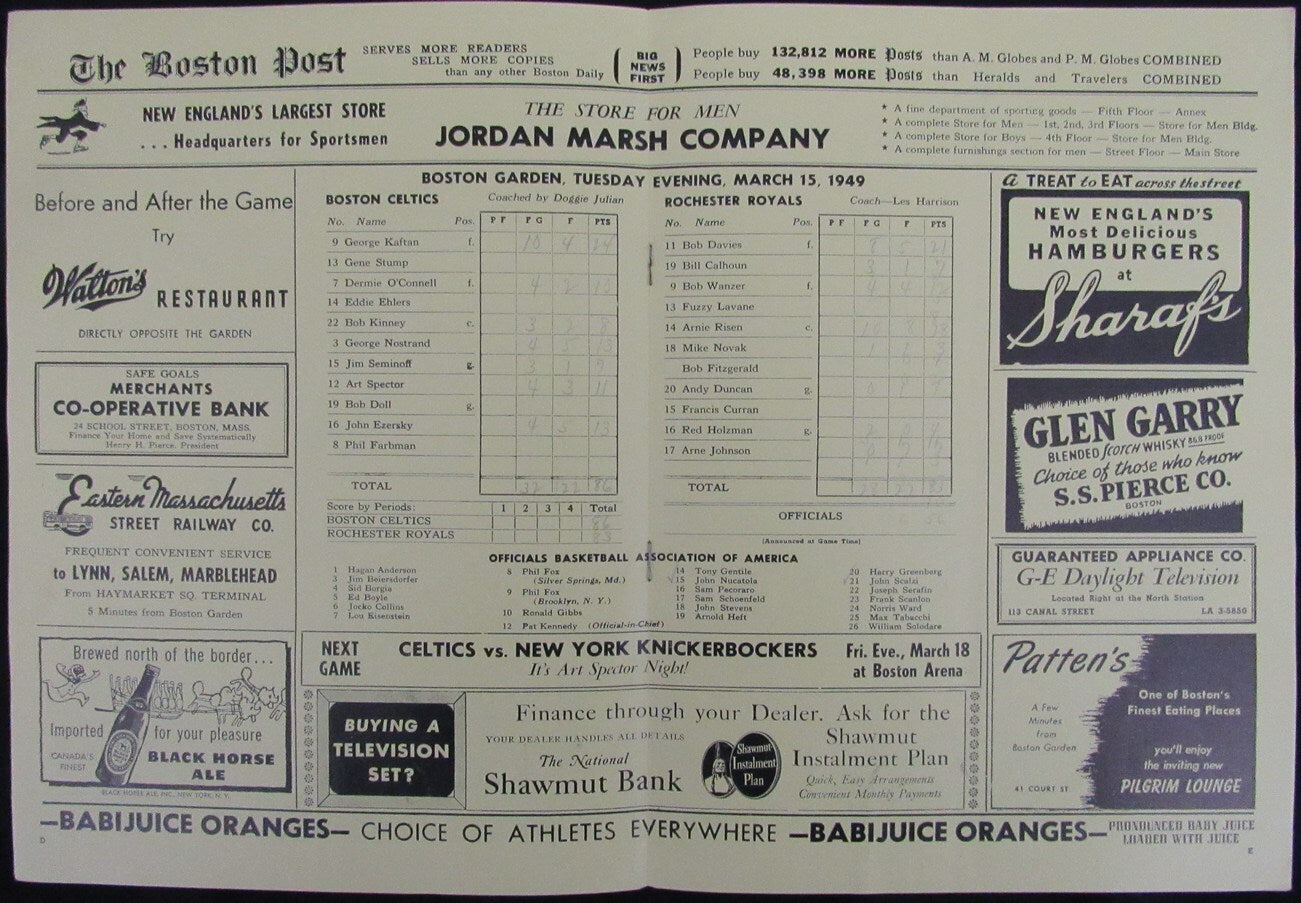 The Boston Post
SERVES MORE READERS
SELLS MORE COPIES
than any other Boston Daily
BIG
NEWS
FIRST
People buy 132,812 MORE Posts than A. M. Globes and P. M. Globes COMBINED
People buy 48,398 MORE Posts than Heralds and Travelers COMBINED
NEW ENGLAND'S LARGEST STORE
... Headquarters for Sportsmen
THE STORE FOR MEN
JORDAN MARSH COMPANY
* A fine department of sporting goods — Fifth Floor — Annex
* A complete Store for Men — 1st, 2nd, 3rd Floors — Store for Men Bldg.
* A complete Store for Boys — 4th Floor — Store for Men Bldg.
* A complete furnishings section for men — Street Floor — Main Store
Before and After the Game
Try
Walton's RESTAURANT
DIRECTLY OPPOSITE THE GARDEN
SAFE GOALS
MERCHANTS
CO-OPERATIVE BANK
24 SCHOOL STREET, BOSTON, MASS.
Finance Your Home and Save Systematically
Henry H. Pierce, President
Eastern Massachusetts
STREET RAILWAY CO.
FREQUENT CONVENIENT SERVICE
to LYNN, SALEM, MARBLEHEAD
From HAYMARKET SQ. TERMINAL
5 Minutes from Boston Garden
Brewed north of the border...
Imported for your pleasure
CANADA'S
FINEST
BLACK HORSE
ALE
BLACK HORSE ALE, INC., NEW YORK, N. Y.
BOSTON GARDEN, TUESDAY EVENING, MARCH 15, 1949
BOSTON CELTICS Coached by Doggie Julian
No. Name Pos. P F F G F PTS
9 George Kaftan f. 10 4 24
13 Gene Stump
7 Dermie O'Connell f. 4 2 10
14 Eddie Ehlers
22 Bob Kinney c. 3 2 8
3 George Nostrand 4 5 13
15 Jim Seminoff g. 3 1 7
12 Art Spector 4 3 11
19 Bob Doll g.
16 John Ezersky 4 5 13
8 Phil Farbman
TOTAL 32 22 86
Score by Periods: 1 2 3 4 Total
BOSTON CELTICS 86
ROCHESTER ROYALS 83
ROCHESTER ROYALS Coach—Les Harrison
No. Name Pos. P F F G F PTS
11 Bob Davies f. 8 5 21
19 Bill Calhoun 3 1 7
9 Bob Wanzer f. 4 4 12
13 Fuzzy Lavane
14 Arnie Risen c. 10
18 Mike Novak 1 1 3
Bob Fitzgerald
20 Andy Duncan g.
15 Francis Curran
16 Red Holzman g.
17 Arne Johnson
TOTAL
OFFICIALS
(Announced at Game Time)
OFFICIALS BASKETBALL ASSOCIATION OF AMERICA
1 Hagan Anderson
3 Jim Beiersdorfer
4 Sid Borgia
5 Ed Boyle
6 Jocko Collins
7 Lou Eisenstein
8 Phil Fox
(Silver Springs, Md.)
9 Phil Fox
(Brooklyn, N. Y.)
10 Ronald Gibbs
12 Pat Kennedy (Official-in-Chief)
14 Tony Gentile
15 John Nucatola
16 Sam Pecoraro
17 Sam Schoenfeld
18 John Stevens
19 Arnold Heft
20 Harry Greenberg
21 John Scalzi
22 Joseph Serafin
23 Frank Scanlon
24 Norris Ward
25 Max Tabacchi
26 William Solodare
NEXT
GAME
CELTICS vs. NEW YORK KNICKERBOCKERS
It's Art Spector Night!
Fri. Eve., March 18
at Boston Arena
BUYING A
TELEVISION
SET?
Finance through your Dealer. Ask for the
YOUR DEALER HANDLES ALL DETAILS
The National
Shawmut Bank
Shawmut
Instalment
Plan
Shawmut
Instalment Plan
Quick, Easy Arrangements
Convenient Monthly Payments
A TREAT to EAT across the street
NEW ENGLAND'S
Most Delicious
HAMBURGERS
at
Sharaf's
GLEN GARRY
BLENDED SCOTCH WHISKY 86.8 PROOF
Choice of those who know
S.S. PIERCE CO.
BOSTON
GUARANTEED APPLIANCE CO.
G-E Daylight Television
Located Right at the North Station
113 CANAL STREET LA 3-5850
Patten's
One of Boston's
Finest Eating Places
A Few
Minutes
from
Boston Garden
you'll enjoy
the inviting new
PILGRIM LOUNGE
41 COURT ST
—BABIJUICE ORANGES— CHOICE OF ATHLETES EVERYWHERE —BABIJUICE ORANGES—
PRONOUNCED BABY JUICE
LOADED WITH JUICE
D
E